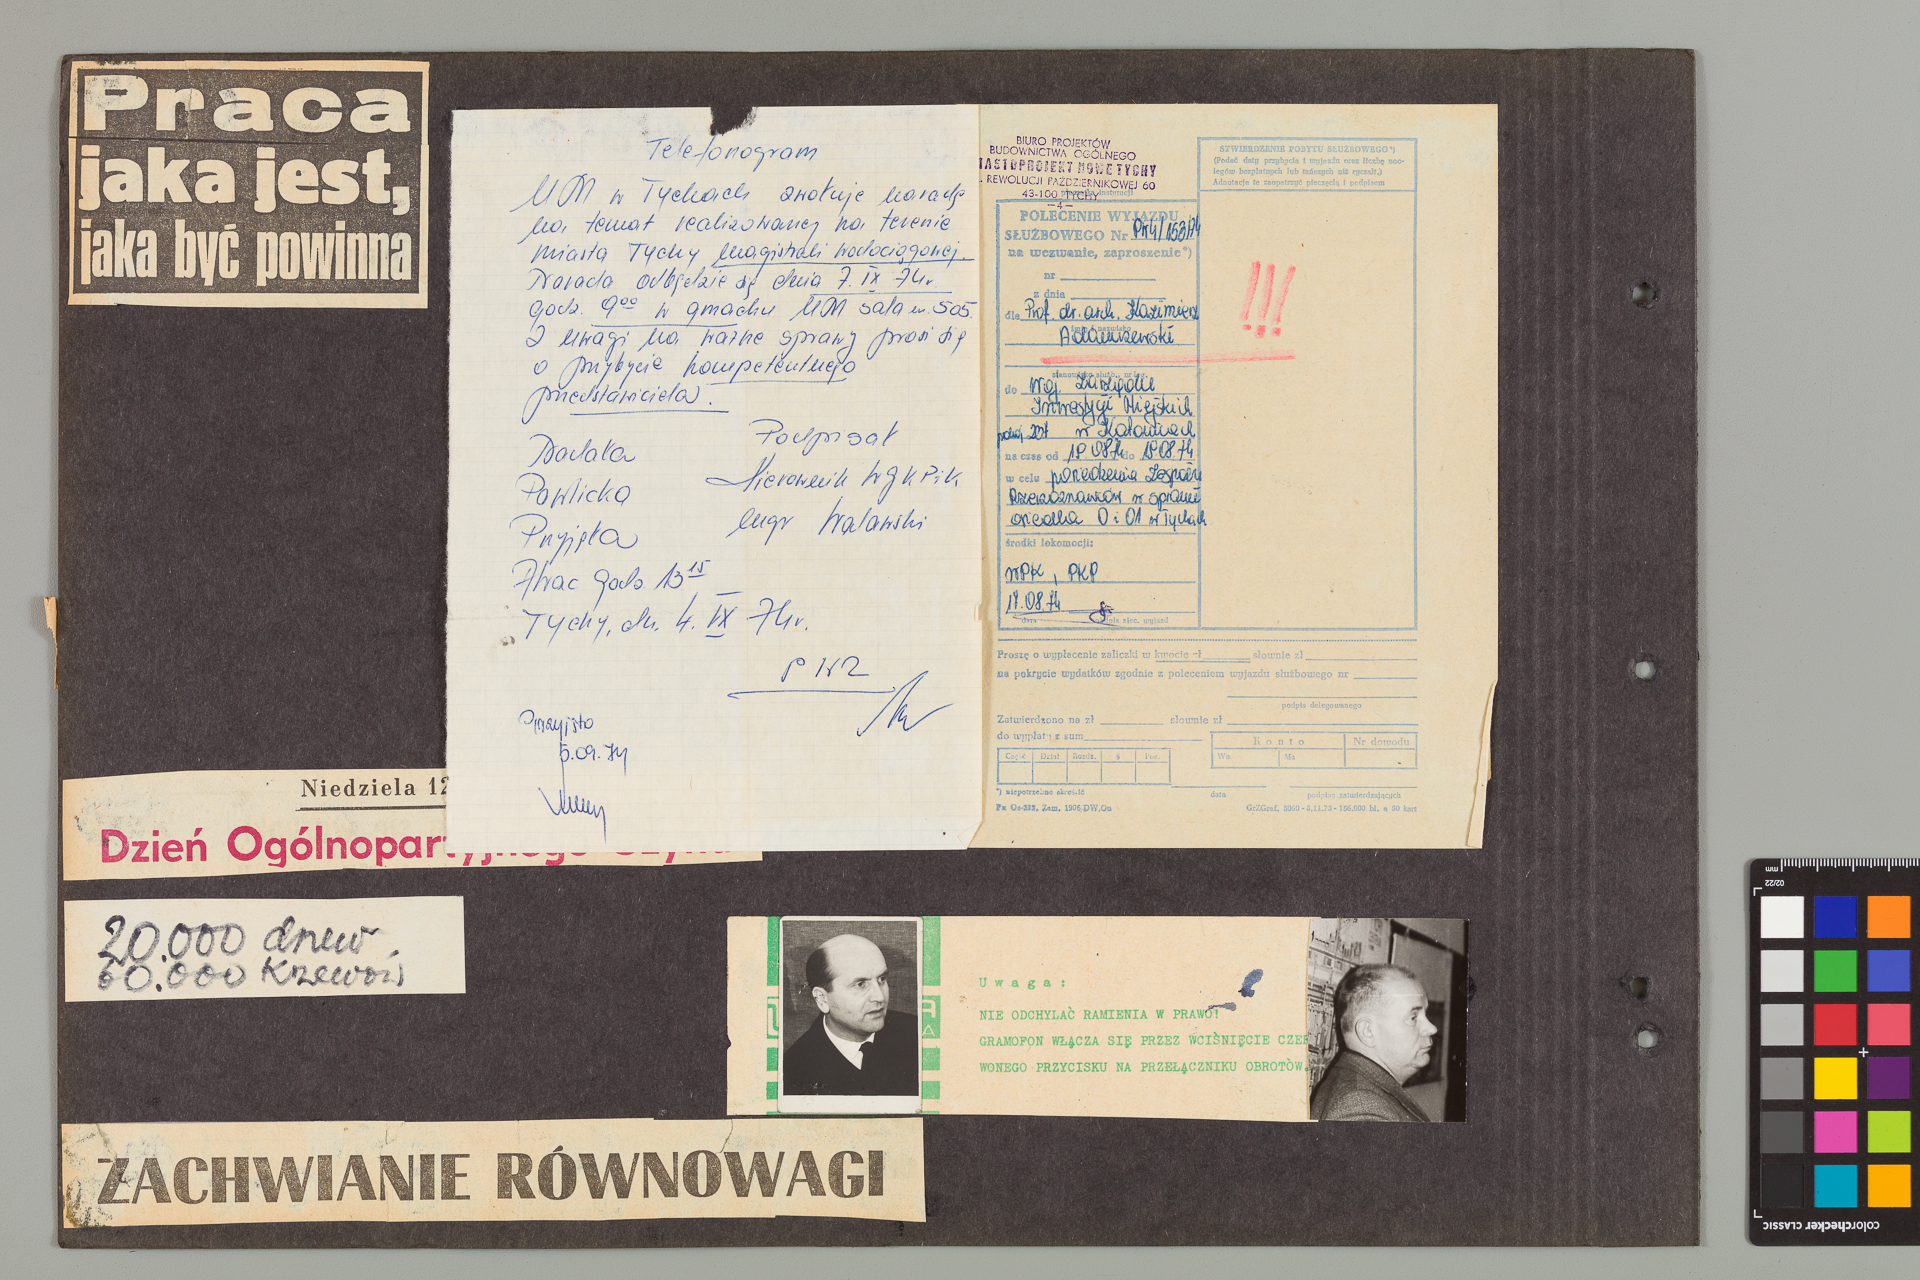 Praca
jaka jest,
jaka być powinna
Telefonogram
UM w Tychach zwołuje naradę
na temat realizowanej na terenie
miasta Tychy magistrali wodociągowej.
Narada odbędzie się dnia 7. IX 74r.
godz. 9⁰⁰ w gmachu UM sala nr. 505.
Z uwagi na ważne sprawy prosi się
o przybycie kompetentnego
przedstawiciela.
Nadała
Pawlicka
Przyjęła
Podpisał
Kierownik WGKPiK
mgr Walawski
godz. 13¹⁵
Tychy, dn. 4. IX 74r.
Przyjęto
5.09.74
BIURO PROJEKTÓW
BUDOWNICTWA OGÓLNEGO
IASTOPROJEKT NOWE TYCHY
. REWOLUCJI PAŹDZIERNIKOWEJ 60
43-100 TYCHY
—4—
POLECENIE WYJAZDU
SŁUŻBOWEGO Nr PN4/153/74
na wezwanie, zaproszenie*)
nr
z dnia
dla Prof. dr. arch. Kazimierz
imię i nazwisko
do Woj Zarządu
Inwestycji Miejskich
pokój 237 w Katowicach
na czas od 19 08 74 do 19 08 74
w celu posiedzenia Zespołu
Rzeczoznawców w sprawie
osiedla O i O1 w Tychach
środki lokomocji:
WPK, PKP
17.08.74
data
STWIERDZENIE POBYTU SŁUŻBOWEGO*)
(Podać daty przybycia i wyjazdu oraz liczbę noc-
legów bezpłatnych lub tańszych niż ryczałt.)
Adnotacje te zaopatrzyć pieczęcią i podpisem
!!!
Proszę o wypłacenie zaliczki w kwocie zł słownie zł
na pokrycie wydatków zgodnie z poleceniem wyjazdu służbowego nr
podpis delegowanego
Zatwierdzono na zł słownie zł
do wypłaty z sum
Część Dział Rozdz. § Poz.
Konto Nr dowodu
Wn Ma
*) niepotrzebne skreślić
data
podpisy zatwierdzających
Pu Os-232. Zam. 1306/DW.On
GrZGraf. 5060 - 3.11.73 - 156.000 bl. a 50 kart
Niedziela 12
Dzień Ogólnopartyjnego Czynu
20.000 drzew
60.000 krzewów
Uwaga:
NIE ODCHYLAĆ RAMIENIA W PRAWO!
GRAMOFON WŁĄCZA SIĘ PRZEZ WCIŚNIĘCIE CZER
WONEGO PRZYCISKU NA PRZEŁĄCZNIKU OBROTÓW.
ZACHWIANIE RÓWNOWAGI
mm
02/22
colorchecker CLASSIC